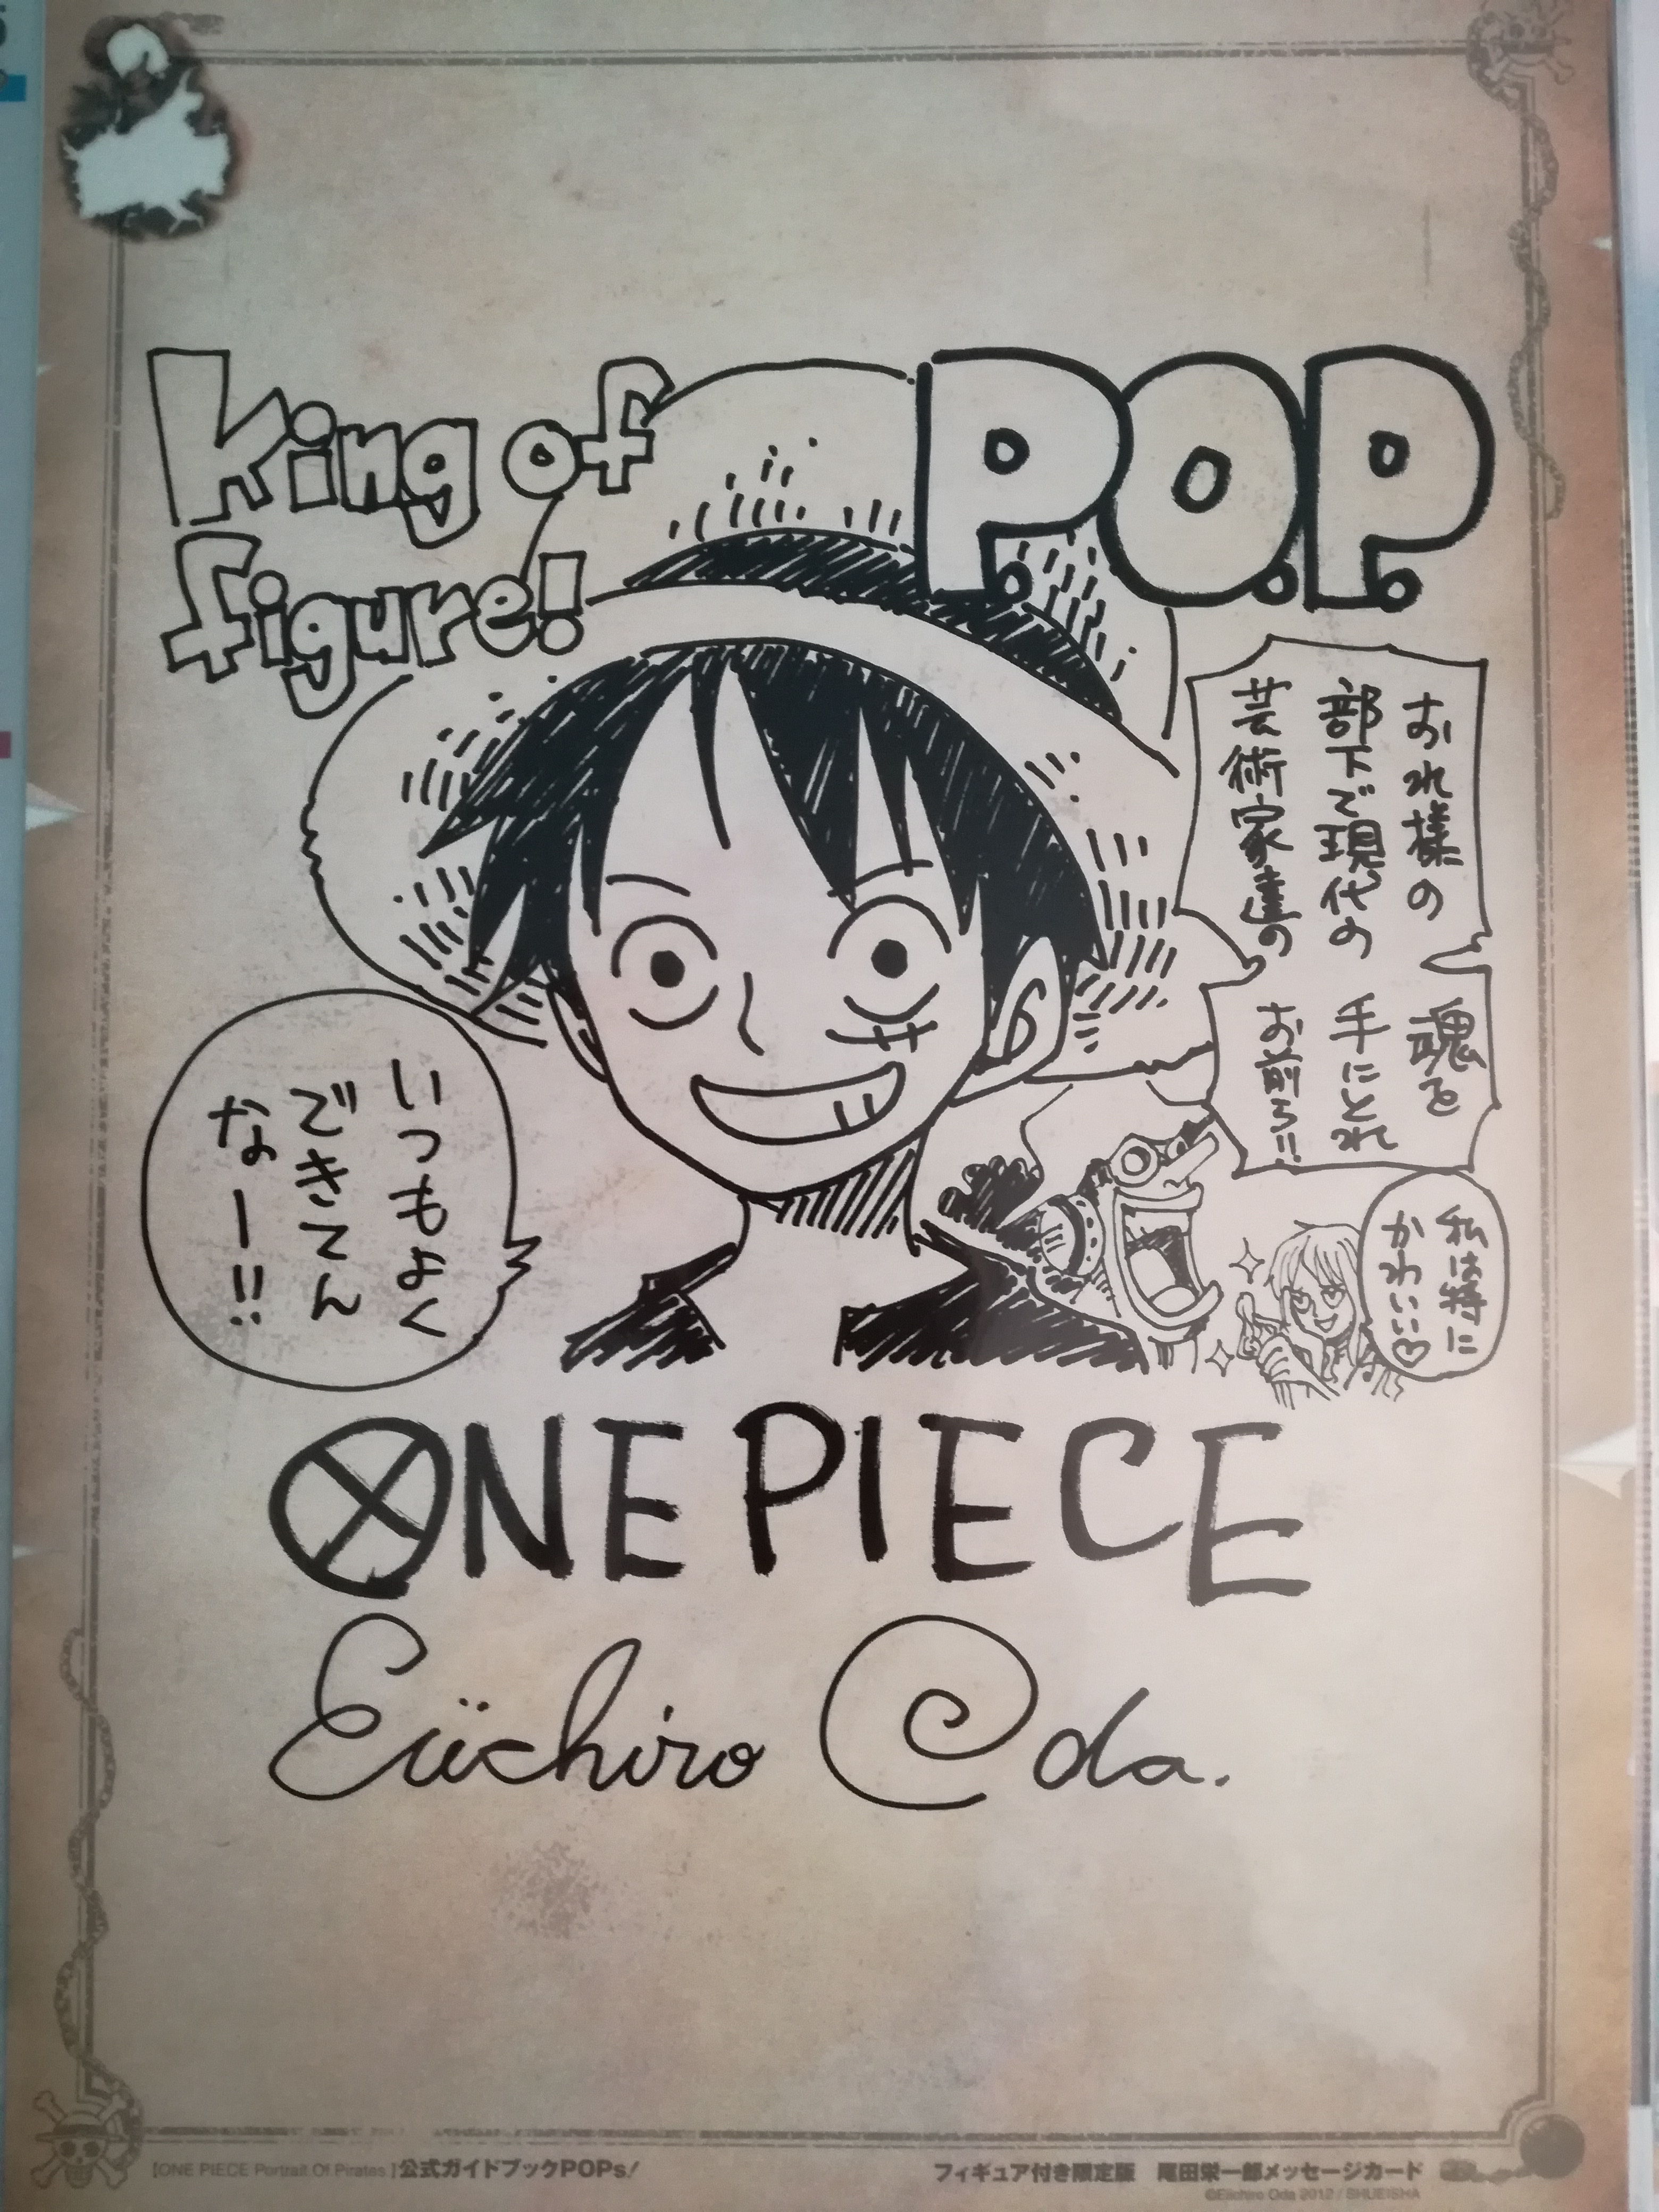 King of P.O.P.
figure!
おれ様の
部下で現代の
芸術家達の
魂を
手にとれ
お前ら!!
いつもよく
できてん
なー!!
私は特に
かわいい♡
ONE PIECE
Eiichiro Oda.
【ONE PIECE Portrait.Of.Pirates】公式ガイドブックPOPs!
フィギュア付き限定版 尾田栄一郎メッセージカード
©Eiichiro Oda 2012 / SHUEISHA